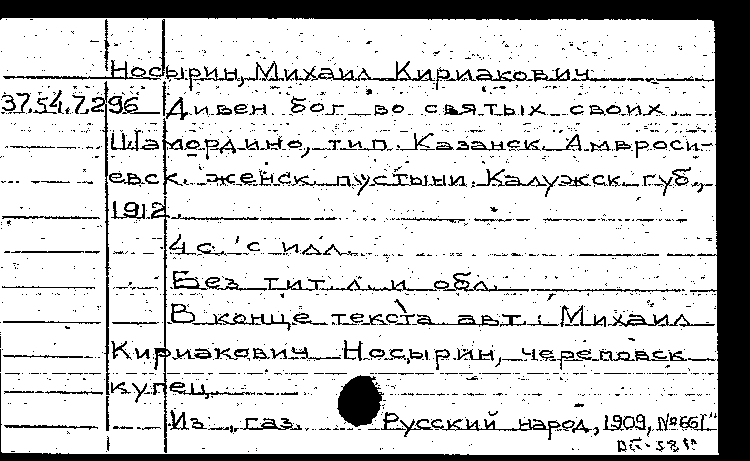 Носырин, Михаил Кириакович
37.54.7.296 Дивен бог во святых своих.
Шамордино, тип. Казанск. Амвроси-
евск. женск. пустыни Калужск. губ.,
1912.
4 с. с илл.
Без тит. л. и обл.
В конце текста авт.: Михаил
Кириакович Носырин, череповск
купец.
Из „газ. Русский народ, 1909, №661"